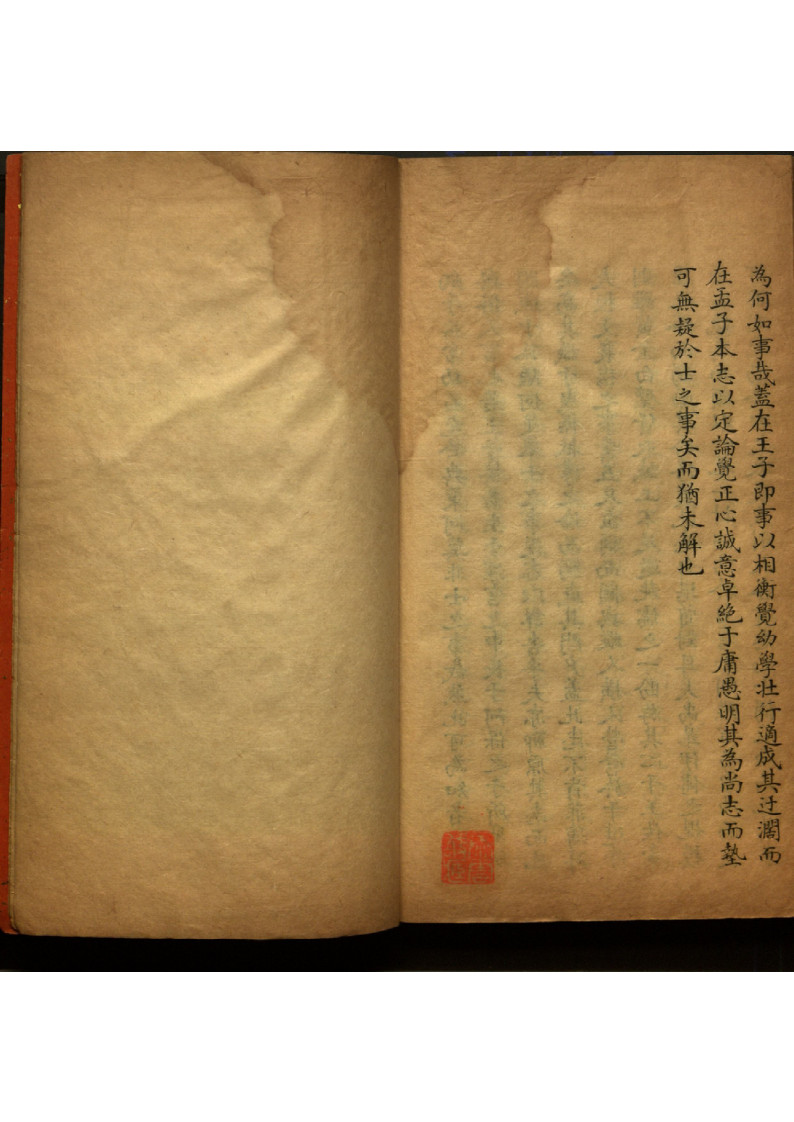 為何如事哉蓋在王子即事以相衡覺幼學壯行適成其迂濶而
在孟子本志以定論覺正心誠意卓絶于庸愚明其為尚志而墊
可無疑於士之事矣而猶未解也